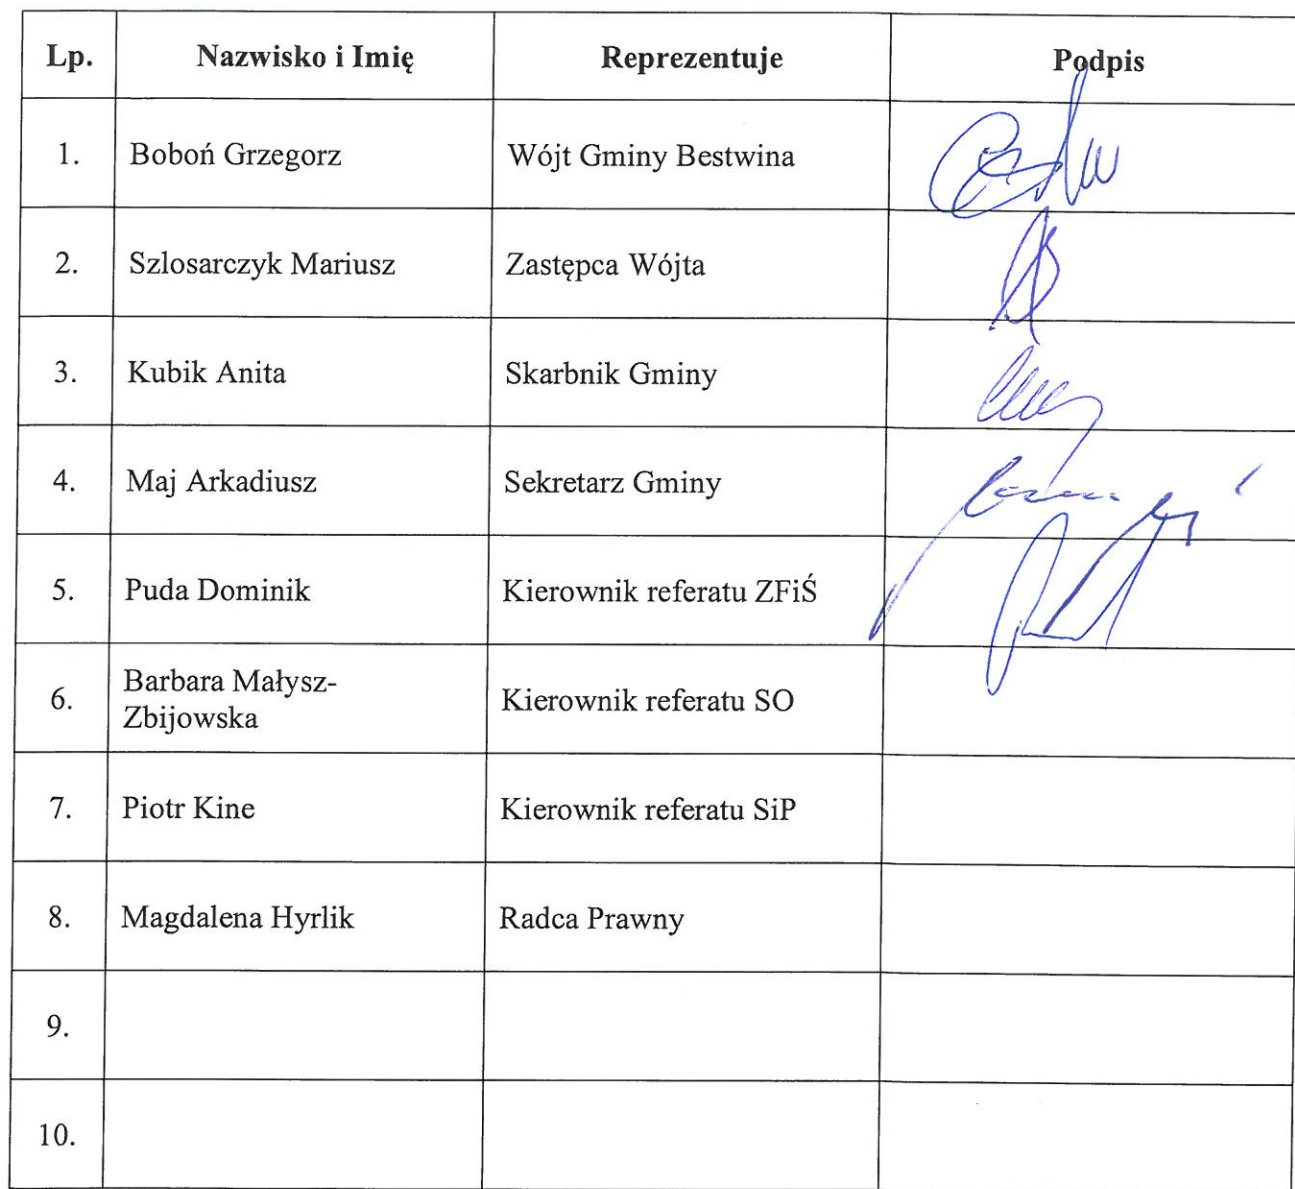 Lp. Nazwisko i Imię Reprezentuje Podpis
1. Boboń Grzegorz Wójt Gminy Bestwina
2. Szlosarczyk Mariusz Zastępca Wójta
3. Kubik Anita Skarbnik Gminy
4. Maj Arkadiusz Sekretarz Gminy
5. Puda Dominik Kierownik referatu ZFiŚ
6. Barbara Małysz-
Zbijowska Kierownik referatu SO
7. Piotr Kine Kierownik referatu SiP
8. Magdalena Hyrlik Radca Prawny
9.
10.